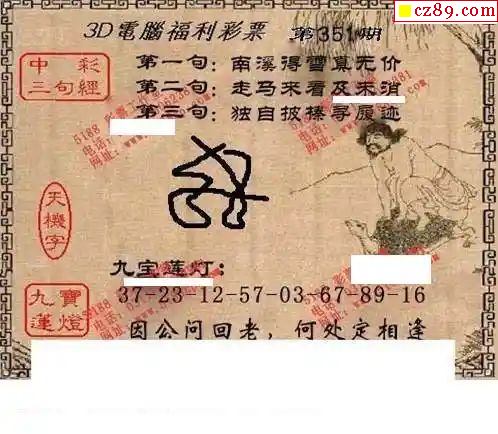 cz89.com
3D電腦福利彩票 第351期
中彩
三句經
第一句：南溪得雪真无价
第二句：走马来看及未消
第三句：独自披榛寻履迹
天機字
九宝莲灯：
九寶
蓮燈
37-23-12-57-03-67-89-16
因公问回老，何处定相逢